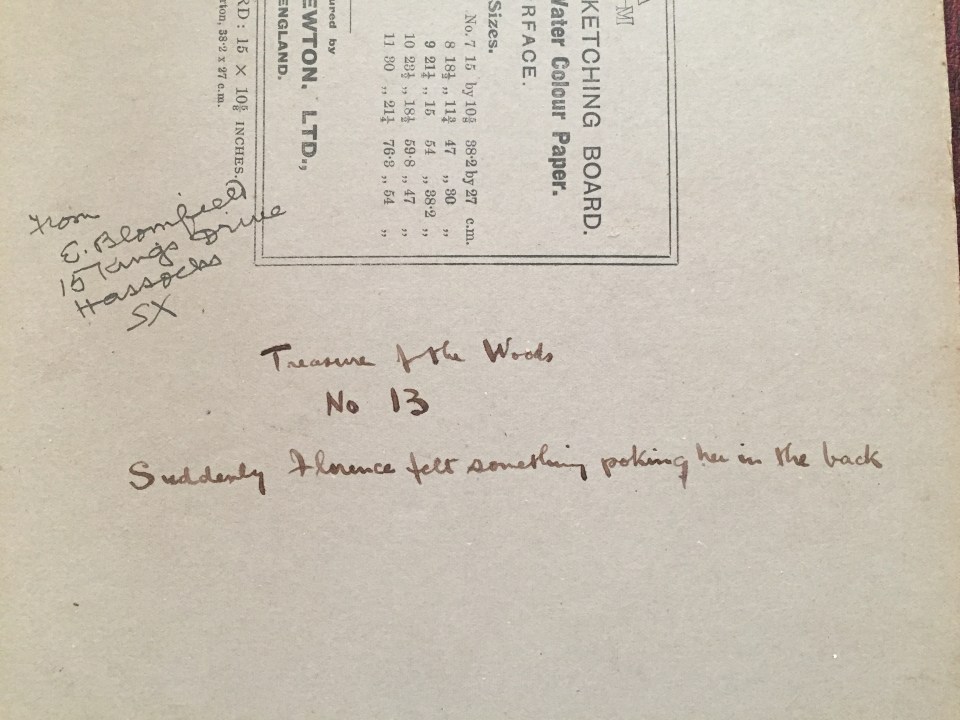 KETCHING BOARD.
Water Colour Paper.
RFACE.
Sizes.
No. 7 15 by 10⅝ 38·2 by 27 c.m.
8 18½ „ 11¾ 47 „ 30 „
9 21¼ „ 15 54 „ 38·2 „
10 23½ „ 18½ 59·8 „ 47 „
11 30 „ 21¼ 76·3 „ 54 „
ured by
EWTON, LTD.,
ENGLAND.
RD: 15 × 10⅝ INCHES.
rton, 38·2 x 27 c.m.
From
E. Blomfield
15 Kings Drive
Hassocks
SX
Treasure of the Woods
No 13
Suddenly Florence felt something poking her in the back